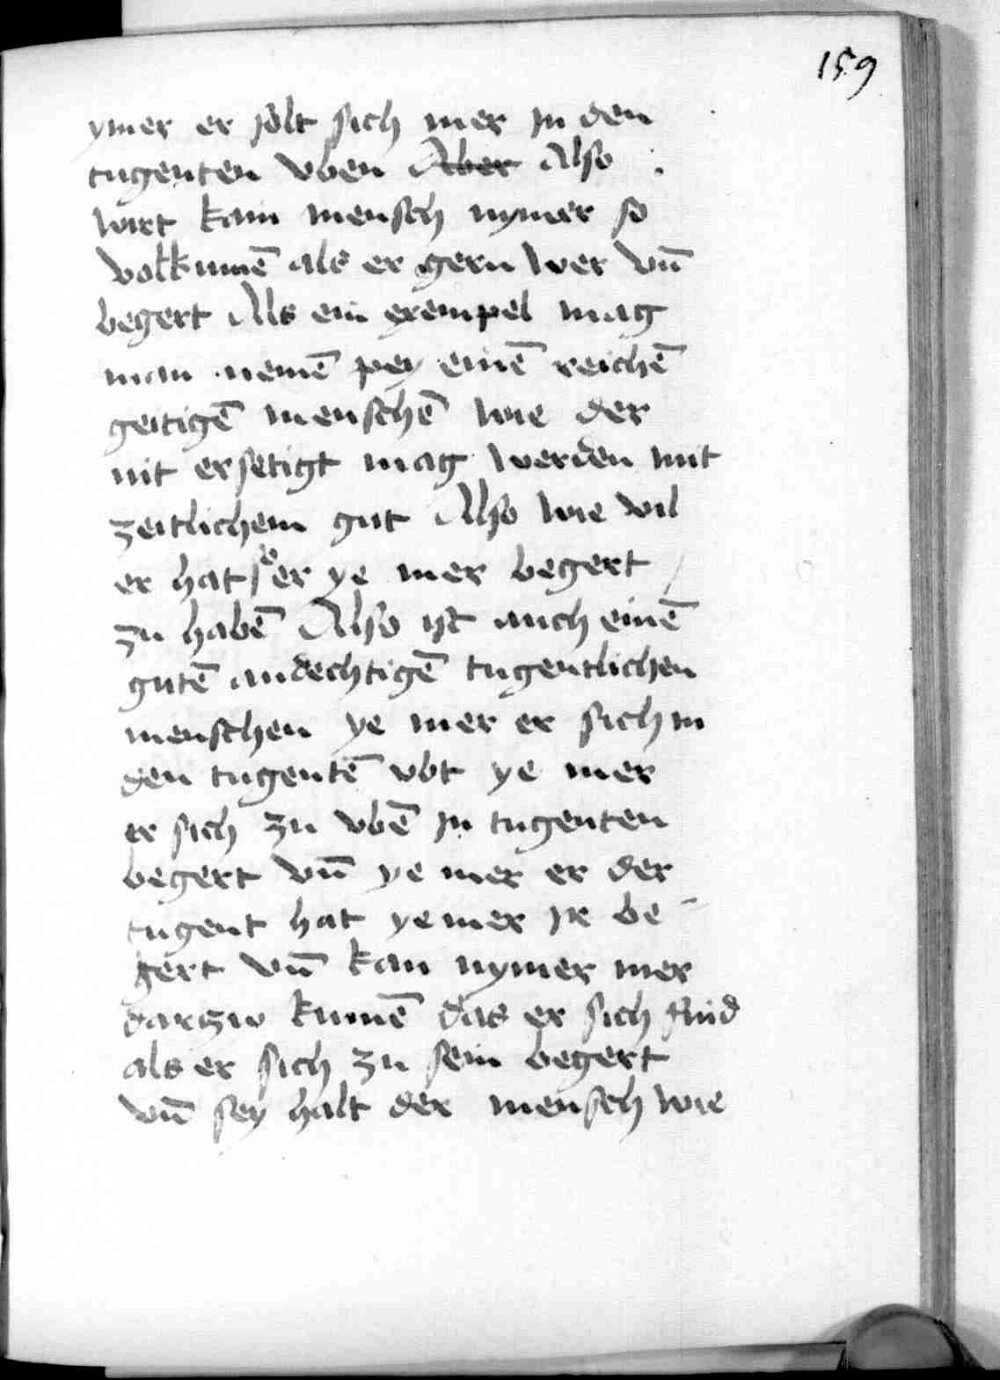 159
ymer er solt sich mer jn den
tugenten vben Aber Also
wirt kain mensch nymer so
volkumē als er gern wer vn̄
begert Als ein exempel mag
man nemē pey einē reichē
geitigē menschē wie der
nit ersetigt mag werden mit
zeitlichem gut Also wie vil
er hat er ye mer begert
zu habē Also ist auch einē
gutē andechtigē tugentlichen
menschen ye mer er sich in
den tugentē vbt ye mer
er sich zu vbē jn tugenten
begert vn̄ ye mer er der
tugent hat ye mer jr be-
gert vn̄ kan nymer mer
darzw kumē das er sich find
als er sich zu sein begert
vn̄ sey halt der mensch wie